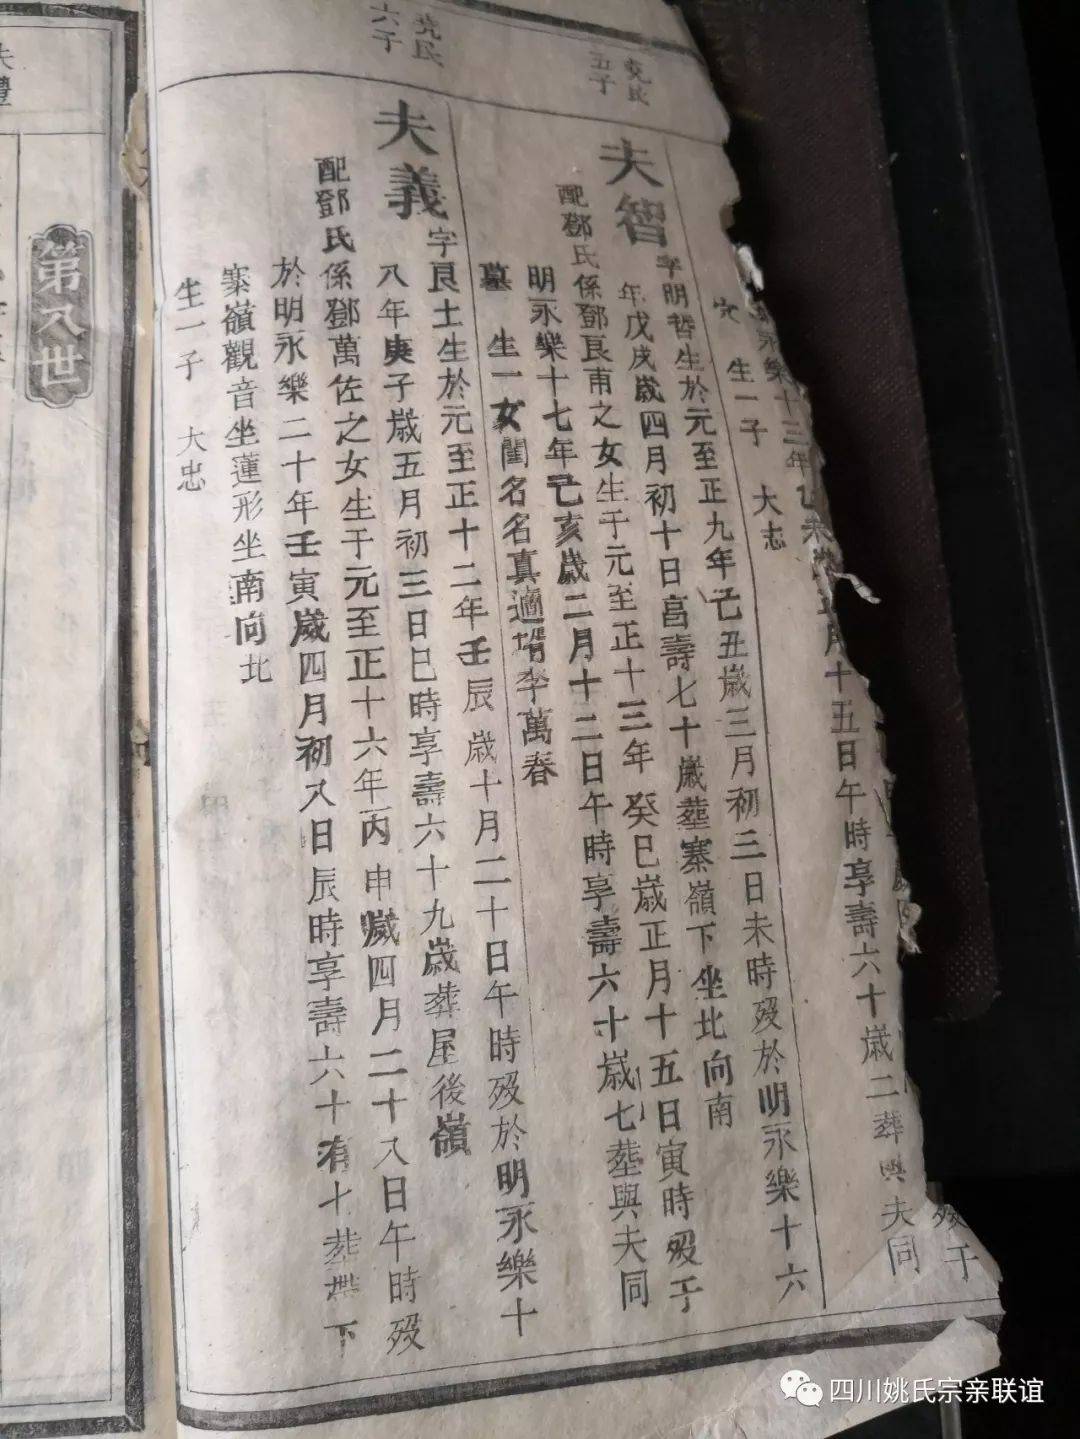 殁于
永樂十三年乙未歲五月十五日午時享壽六十歲二葬與夫同
穴 生一子 大志
堯民
五子
夫智
字明哲生於元至正九年己丑歲三月初三日未時殁於明永樂十六
年戊戌歲四月初十日壽七十歲塟寨嶺下坐北向南
配鄧氏係鄧良甫之女生于元至正十三年癸巳歲正月十五日寅時殁于
明永樂十七年己亥歲二月十二日午時享壽六十歲七塟與夫同
墓 生一女閨名名真適壻李萬春
堯民
六子
夫義
字良土生於元至正十二年壬辰歲十月二十日午時殁於明永樂十
八年庚子歲五月初三日巳時享壽六十九歲葬屋後嶺
配鄧氏係鄧萬佐之女生于元至正十六年丙申歲四月二十八日午時殁
於明永樂二十年壬寅歲四月初八日辰時享壽六十有七塟下
寨嶺觀音坐蓮形坐南向北
生一子 大忠
第八世
夫禮
四川姚氏宗亲联谊